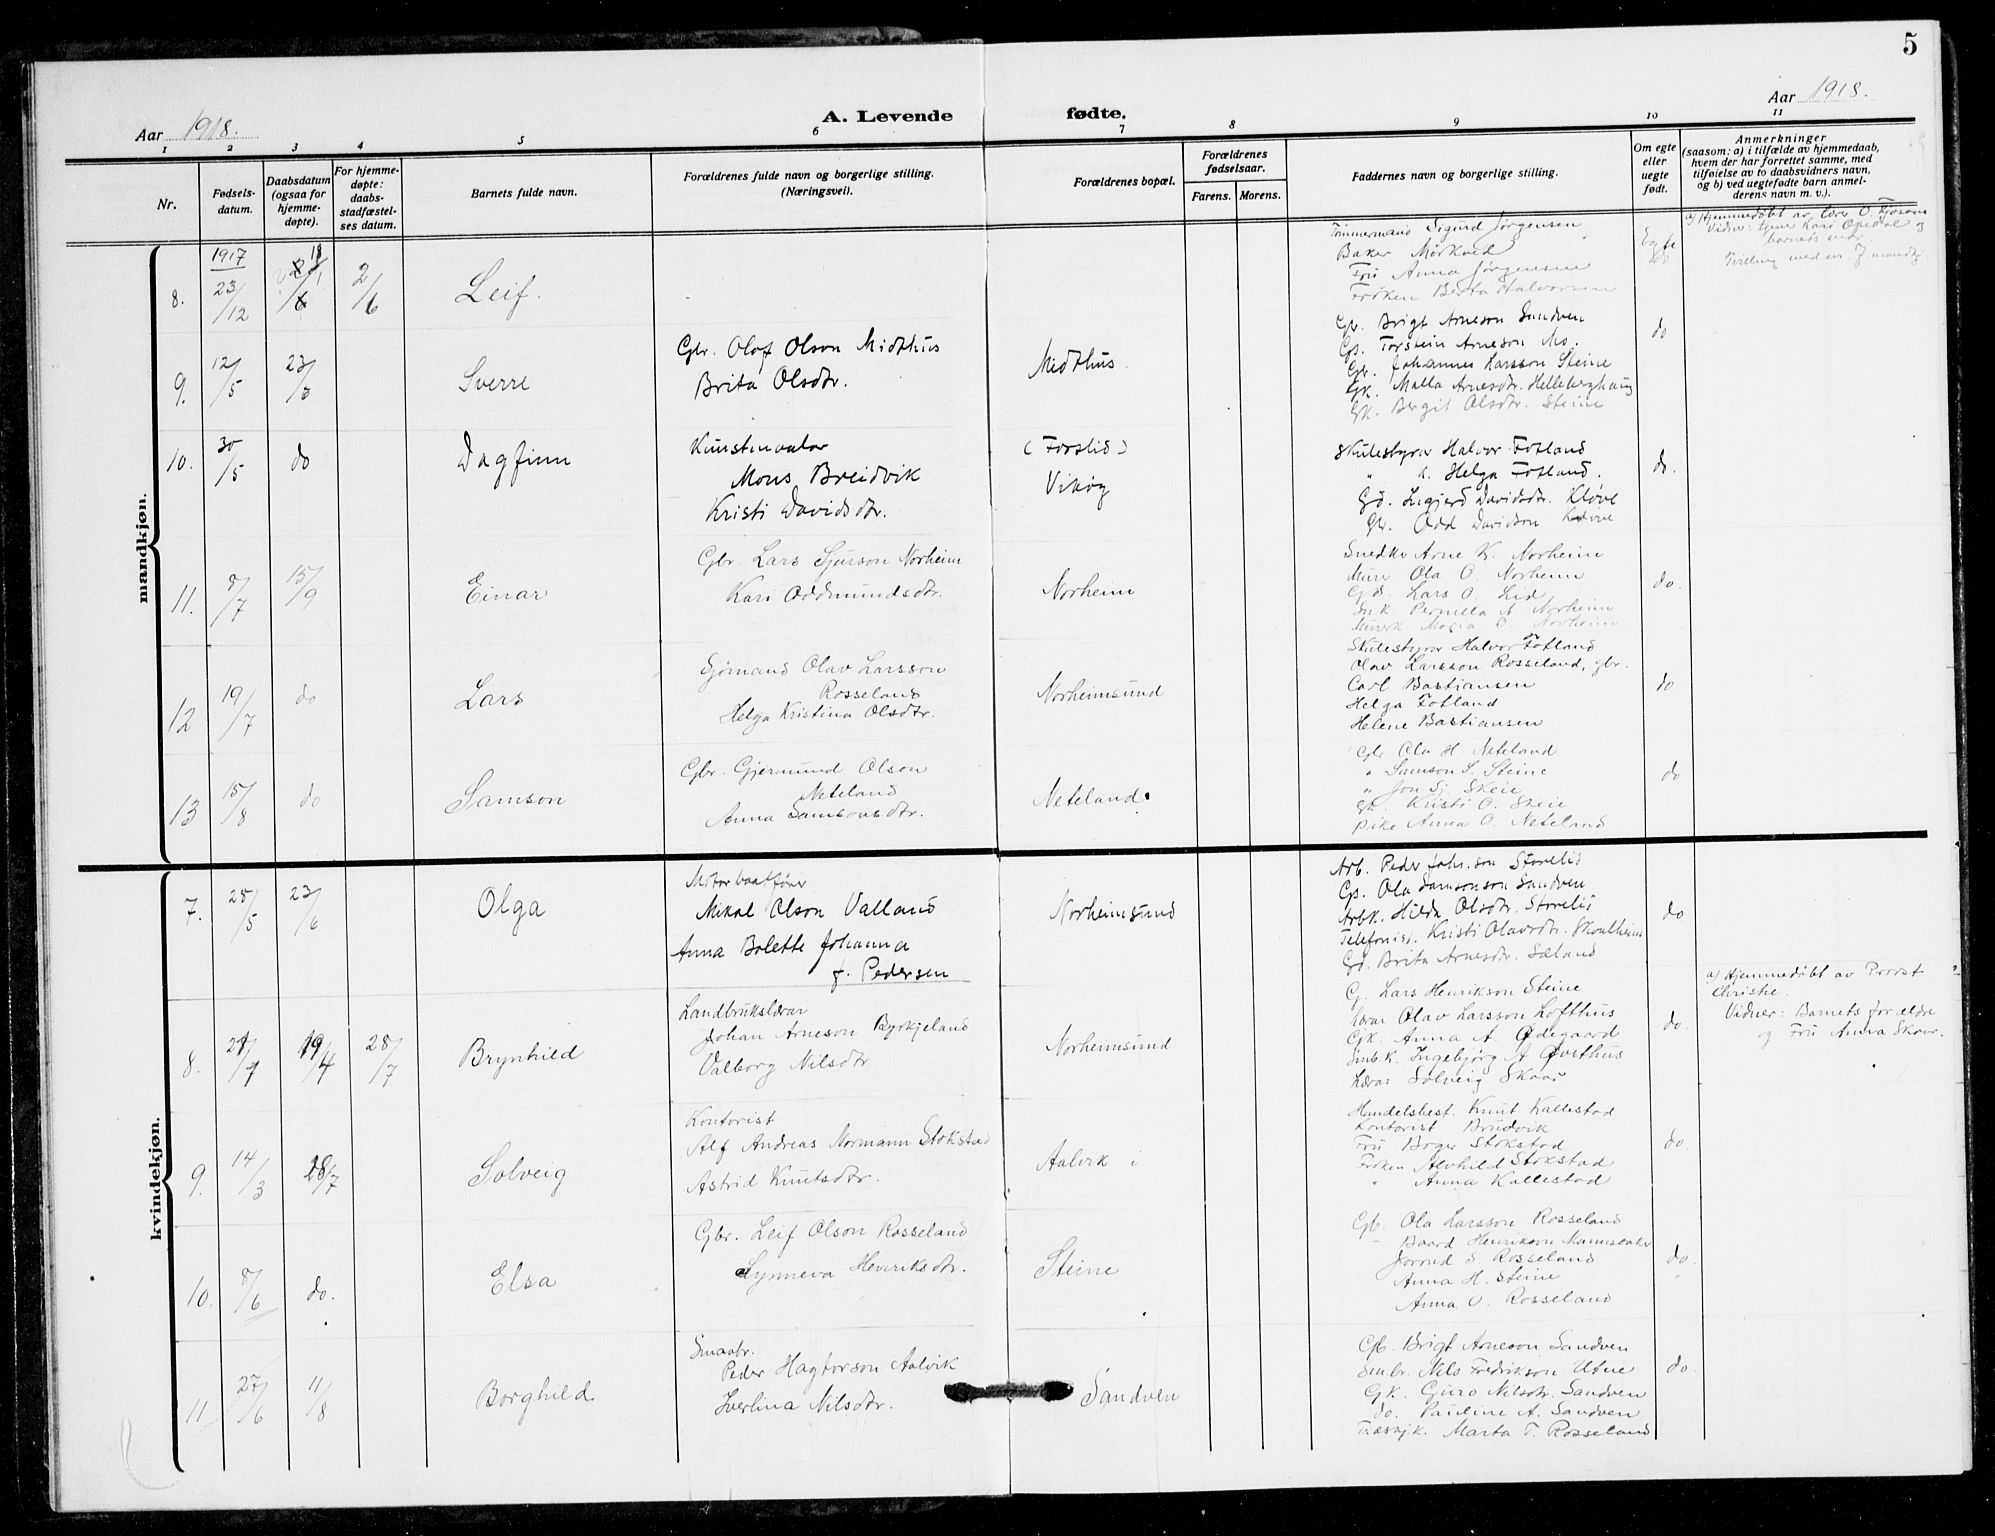 5
Aar 1918.
A. Levende fødte.
Aar 1918.
1 2 3 4 5 6 7 8 9 10 11
Nr.
Fødsels-
datum.
Daabsdatum
(ogsaa for
hjemme-
døpte).
For hjemme-
døpte:
daabs-
stadfæstel-
ses datum.
Barnets fulde navn.
Forældrenes fulde navn og borgerlige stilling.
(Næringsvei).
Forældrenes bopæl.
Forældrenes
fødselsaar.
Farens. Morens.
Faddernes navn og borgerlige stilling.
Om egte
eller
uegte
født.
Anmerkninger
(saasom: a) i tilfælde av hjemmedaab,
hvem der har forrettet samme, med
tilføielse av to daabsvidners navn,
og b) ved uegtefødte barn anmel-
derens navn m. v.).
mandkjøn.
8. 1917 23/12 2/6 Leif.
Tømmermand Sigurd Jørgensen
Baker Mørkved
Fru Anna Jørgensen
Frøken Berta Halvorsen
Egte
a) Hjemmedøbt av lærer O.
Tvilling med nr. 7 mandkj.
9. 12/5 23/6 Sverre
Gbr. Olof Olson Midthus
Brita Olsdtr.
Midthus.
Gbr. Brigt Arneson Sandven
Gs. Torstein Arneson Mo.
Gbr. Johannes Larsson Steine
Gk. Malla Arnesdtr. Helleberghaug
Gk. Bergit Olsdtr. Steine
do
10. 30/5 do Dagfinn
Kunstmaalar
Mons Breidvik
Kristi Davidsdtr.
(Forslid)
Vikøy
Skulestyrar Halvor Fotland
" k. Helga Fotland.
Gd. Ingjerd Davidsdtr. Kløve
Gbr. Odd Davidson Kløve
do.
11. 8/7 15/9 Einar
Gbr. Lars Sjurson Norheim
Kari Oddmundsdtr.
Norheim
Snedkr Arne K. Norheim
Murer Ola O. Norheim
Gds. Lars O. Lid
Snk. Pernilla A. Norheim
Murerk. O. Norheim
do.
12 19/7 do Lars
Sjømand Olav Larsson
Rosseland
Helga Kristina Olsdtr.
Norheimsund
Skulestyrar Halvor Fotland
Olav Larsson Rosseland, gbr.
Carl Bastiansen
Helga Fotland
Helene Bastiansen
do
13 15/8 do Samson
Gbr. Gjermund Olson
Neteland
Anna Samsonsdtr.
Neteland.
Gbr. Ola H. Neteland
" Samson S. Steine
" Jon Sj. Skeie
Gk. Kristi O. Skeie
pike Anna O. Neteland
do
kvindekjøn.
7. 28/5 23/6 Olga
Motorbaatfører
Mikal Olson Valland
Anna Bolette Johanna
f. Pedersen
Norheimsund
Arb. Peder Joh.son Storelid
Gs. Ola Samsonson Sandven
Arbk. Hilda Olsdtr. Storelid
Telefonist. Kristi Olavsdtr. Skaalheim
Gd. Brita Arnesdtr. Sæland
do
8. 19/4 28/7 Brynhild
Landbrukslærar
Johan Arneson Byrkjeland
Valborg Nilsdtr.
Norheimsund
G. Lars Henrikson Steine
Lærar Olav Larsson Lofthus
Gk. Anna A. Ødegaard
Smbk. Ingebjørg A. Øvsthus
Lærar Solveig Skaar
do.
a) Hjemmedøbt av Provst
Christie.
Vidner: Barnets forældre
og Fru Anna Skaar.
9. 14/3 28/7 Solveig
Kontorist
Alf Andreas Normann Stokstad
Astrid Knutsdtr.
Aalvik i
Handelsbest. Knut Kallestad
Kontorist Brudvik
Fru Borger Stokstad
Frøken Alvhild Stokstad
" Anna Kallestad
do
10. 8/6 do. Elsa
Gbr. Leif Olson Rosseland
Synneva Henriksdtr.
Steine
Gb. Ola Larsson Rosseland
Baard Henrikson Mannsaaker
Jorond S. Rosseland
Anna H. Steine
Anna O. Rosseland
do.
11 27/6 11/8 Borghild
Smaabr.
Peder Hagtorson Aalvik
Iverlina Nilsdtr.
Sandven
Gb. Brigt Arneson Sandven
Smbr. Nils Fredrikson Utne
Gk. Guro Nilsdtr. Sandven
do. Pauline A. Sandven
Marta T. Rosseland
do.